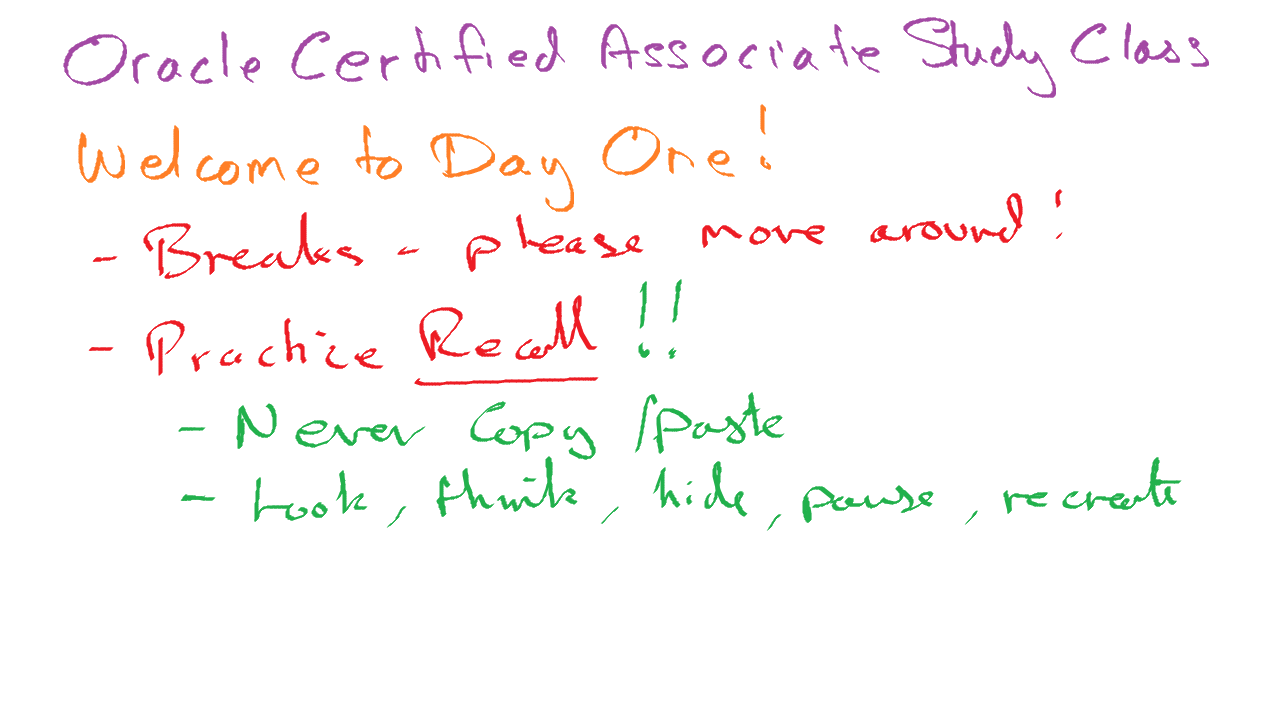 Oracle Certified Associate Study Class
Welcome to Day One!
- Breaks - please move around!
- Practice Recall !!
- Never Copy /paste
- Look, think, hide, pause, recreate